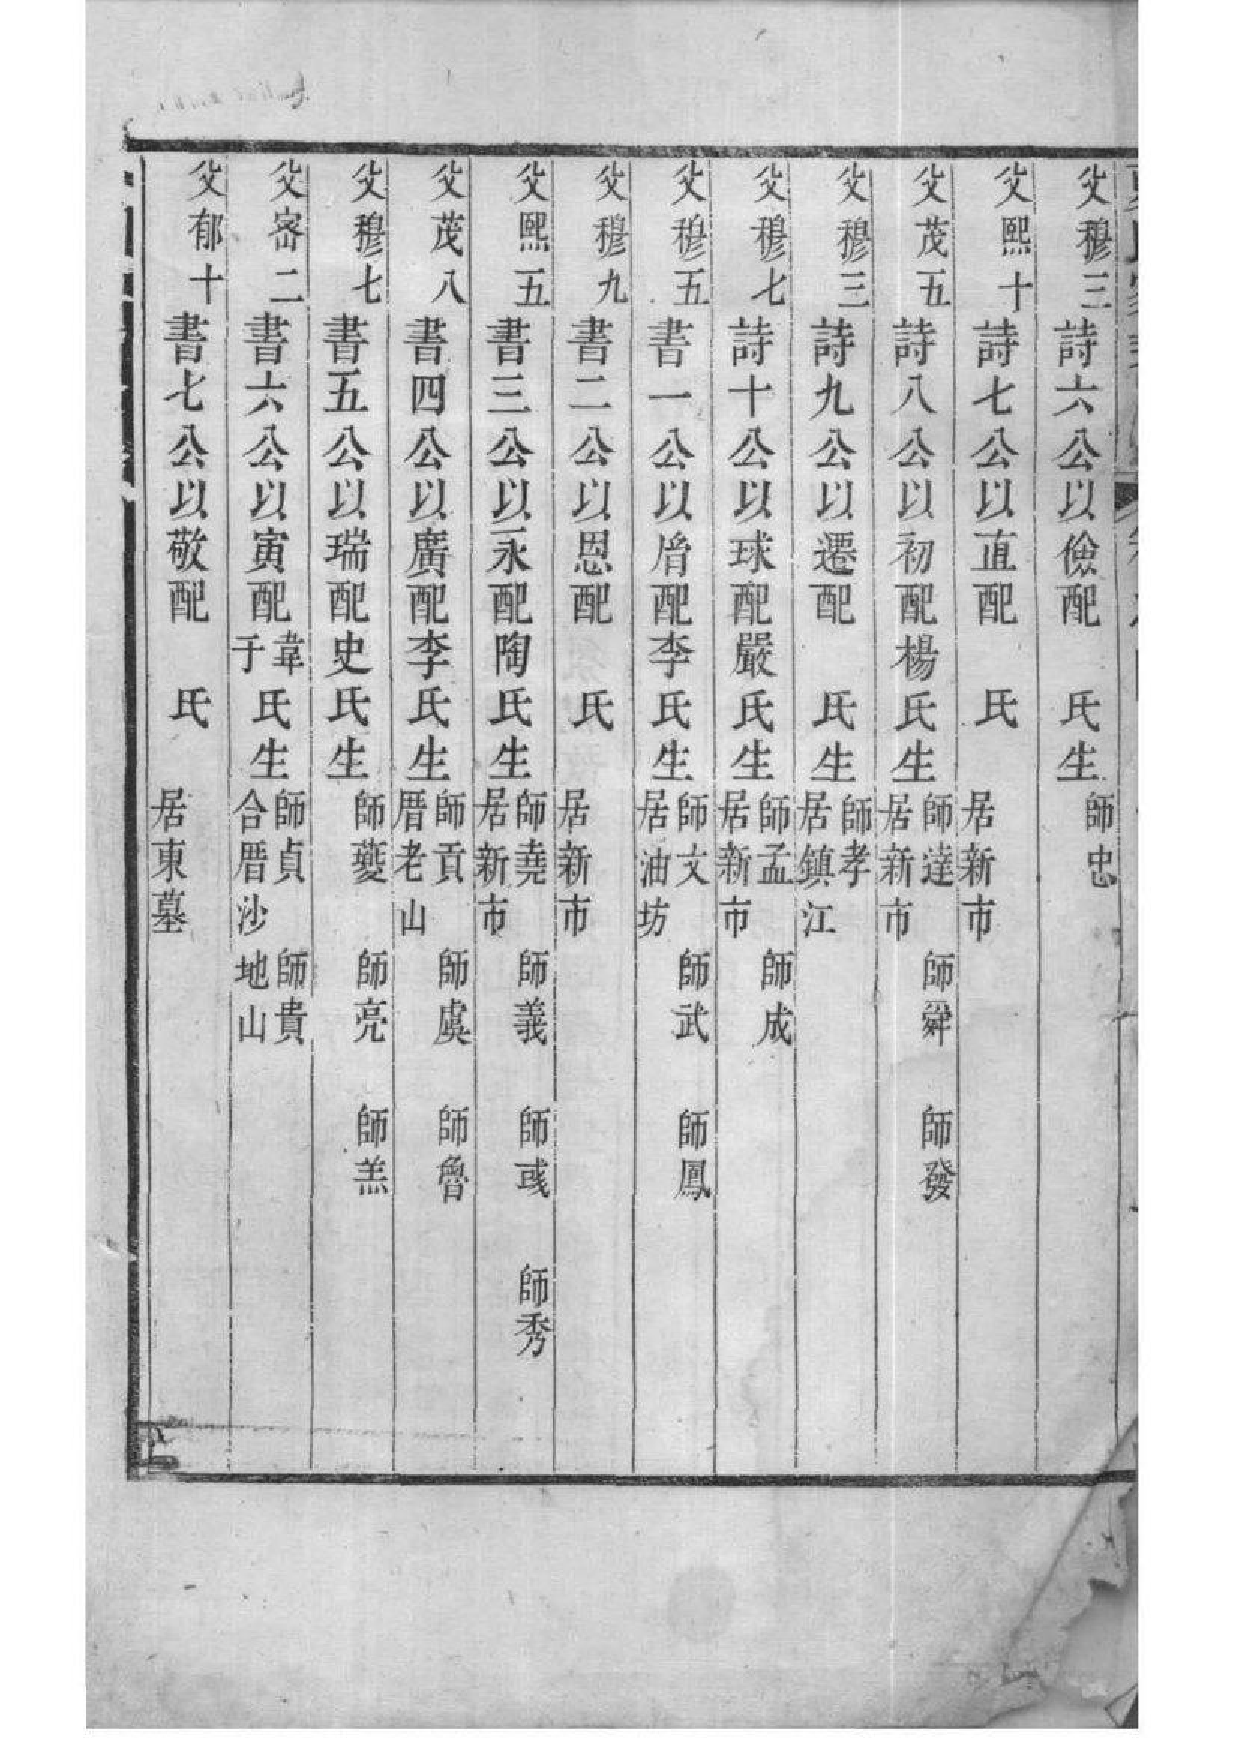 父穆三詩六公以儉配　氏生師忠
父熙十詩七公以直配　氏　居新市
父茂五詩八公以初配楊氏生師達　師舜　師發　居新市
父穆三詩九公以遷配　氏生師孝　居鎮江
父穆七詩十公以球配嚴氏生師孟　師成　居新市
父穆五書一公以㞕配李氏生師文　師武　師鳳　居油坊
父穆九書二公以恩配　氏　居新市
父熙五書三公以永配陶氏生師堯　師義　師彧　師秀　居新市
父茂八書四公以廣配李氏生師貢　師虞　師魯　厝老山
父穆七書五公以瑞配史氏生師夔　師亮　師羔
父密二書六公以寅配韋于氏生師貞　師貴　合厝沙地山
父郁十書七公以敬配　氏　居東墓